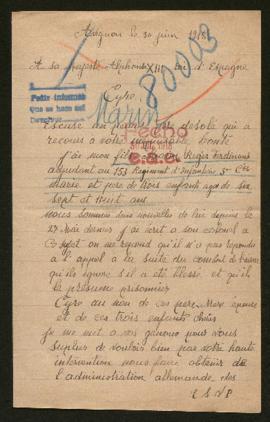 Avignon le 30 juin 1918
A sa majesté Alphonse XIII roi d'Espagne
80003
Cyro
Pedir informes
hecho
Excuse un père désolé qui a
recours à votre bonté
J'ai mon fils Régis Ferdinand
adjudant au 153 Régiment d'Infanterie 5e Cie
marié et père de trois enfants agés de six
sept et huit ans
nous sommes sans nouvelles de lui depuis le
27 Mai dernier j'ai écrit a son colonel a
ce sujet on me repond qu'il n'a pas repondu
a l'appel a la suite des combats
qu'ils ignore s'il a été blessé et qu'il
le présume prisonnier
Cyro au nom de ces père Mère épouse
et de ces trois enfants chéris
je me met a vos genoux pour vous
suplier de vouloir bien par votre haute
intervention nous faire obtenir de
l'administration allemande des